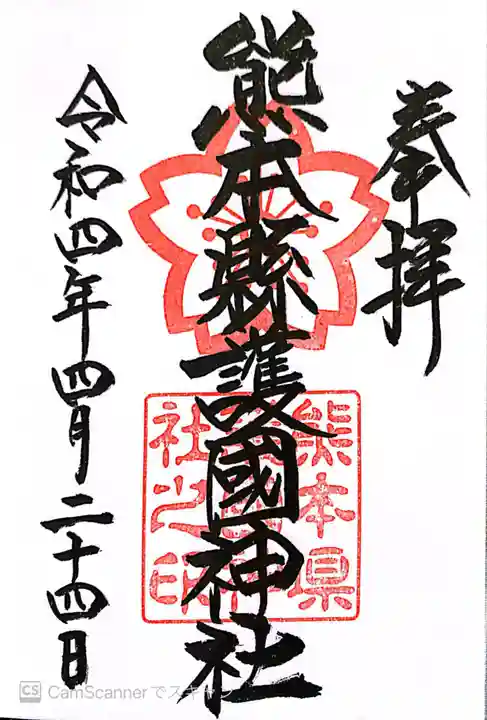 奉拝
熊本縣護國神社
熊本県
社之印
令和四年四月二十四日
CS CamScannerでスキャン